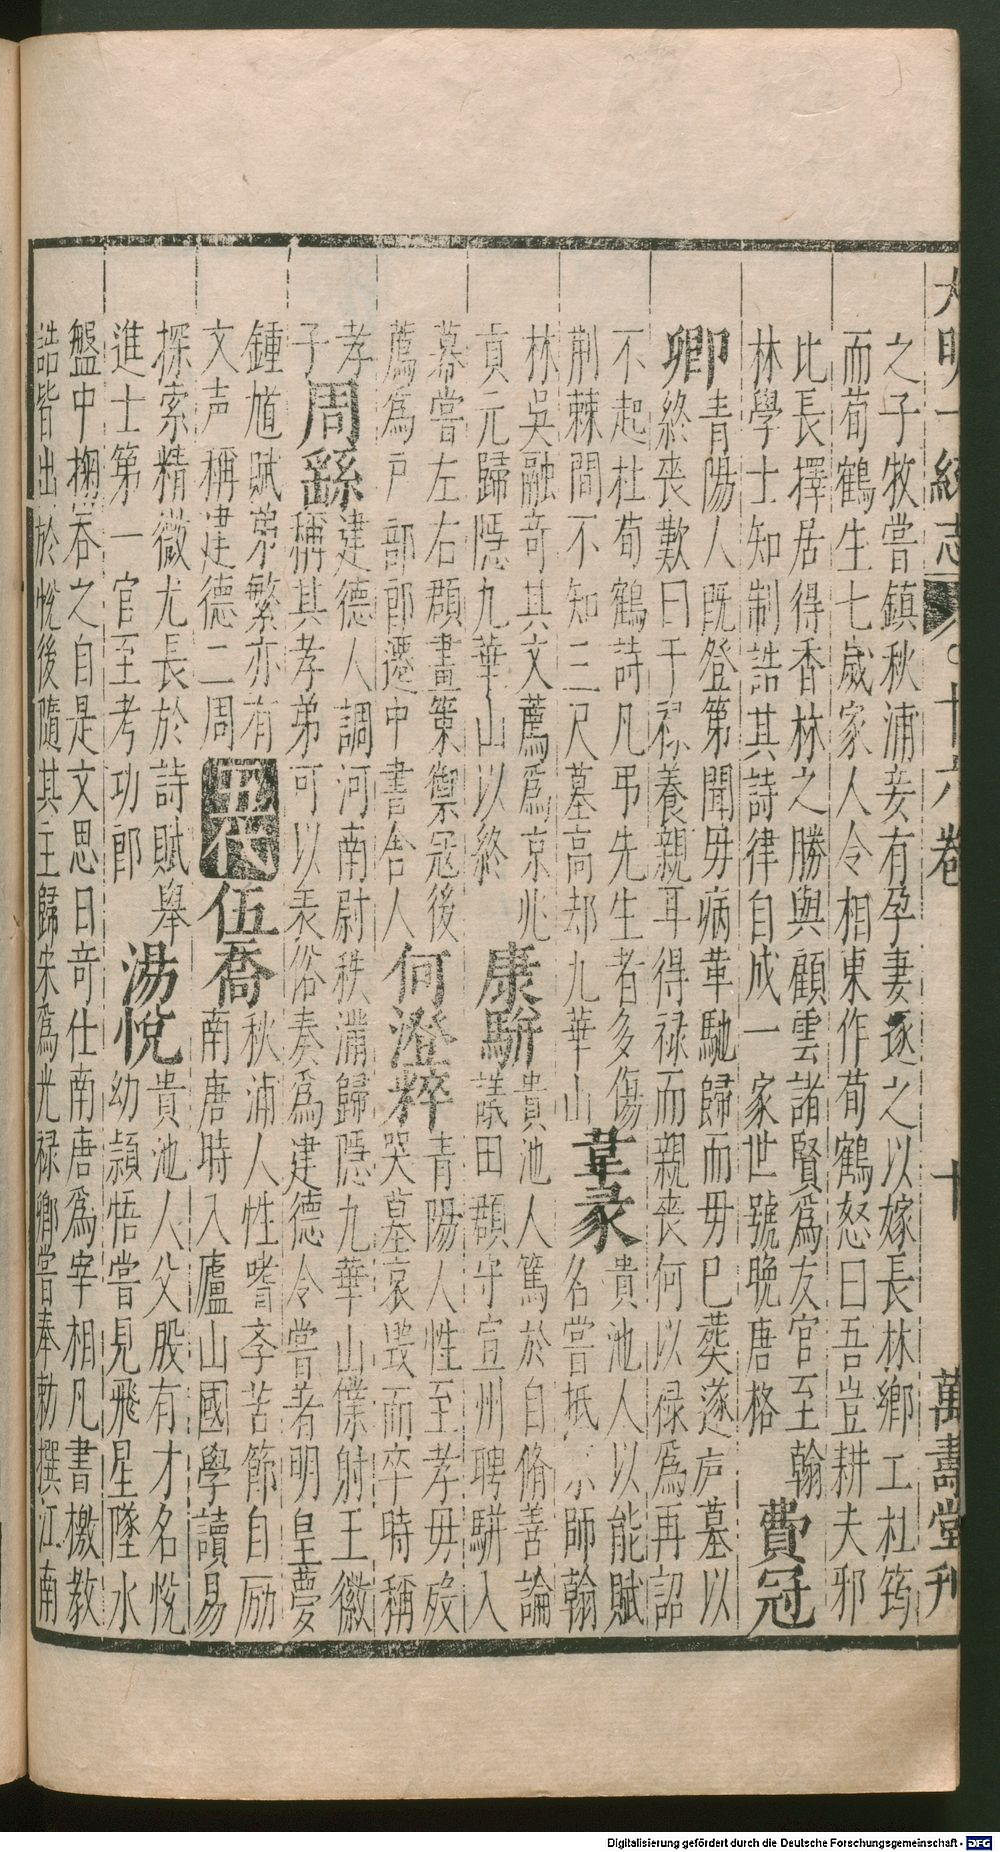 大明一統志 十六卷 十 萬壽堂刊
之子牧嘗鎮秋浦妾有孕妻逐之以嫁長林鄉工杜筠
而荀鶴生七歲家人令相東作荀鶴怒曰吾豈耕夫邪
比長擇居得香林之勝與顧雲諸賢爲友官至翰
林學士知制誥其詩律自成一家世號晚唐格
費冠
卿
青陽人既登第聞毋病革馳歸而毋已葬遂庐墓以
終喪歎曰于禄養親耳得禄而親喪何以禄爲再詔
不起杜荀鶴詩凡弔先生者多傷
荆棘間不知三尺墓高却九華山
韋彖
貴池人以能賦
名嘗抵京師翰
林吳融奇其文薦爲京兆
貢元歸隱九華山以終
康駢
貴池人篤於自脩善論
議田頵守宣州聘駢入
幕嘗左右頵畫策禦寇後
薦爲戸部郎遷中書舍人
何澄粹
青陽人性至孝毋歿
哭墓哀毁而卒時稱
孝
子
周繇
建德人調河南尉秩滿歸隱九華山僕射王徽
稱其孝弟可以表俗奏爲建德令嘗著明皇夢
鍾馗賦弟繁亦有
文声稱建德二周
五代
伍喬
秋浦人性嗜李苦節自励
南唐時入廬山國學讀易
探索精微尤長於詩賦舉
進士第一官至考功郎
湯悅
貴池人父殷有才名悅
幼頴悟嘗見飛星墜水
盤中掬吞之自是文思日奇仕南唐爲宰相凡書檄教
誥皆出於悅後隨其主歸宋爲光禄卿嘗奉勅撰江南
Digitalisierung gefördert durch die Deutsche Forschungsgemeinschaft - DFG